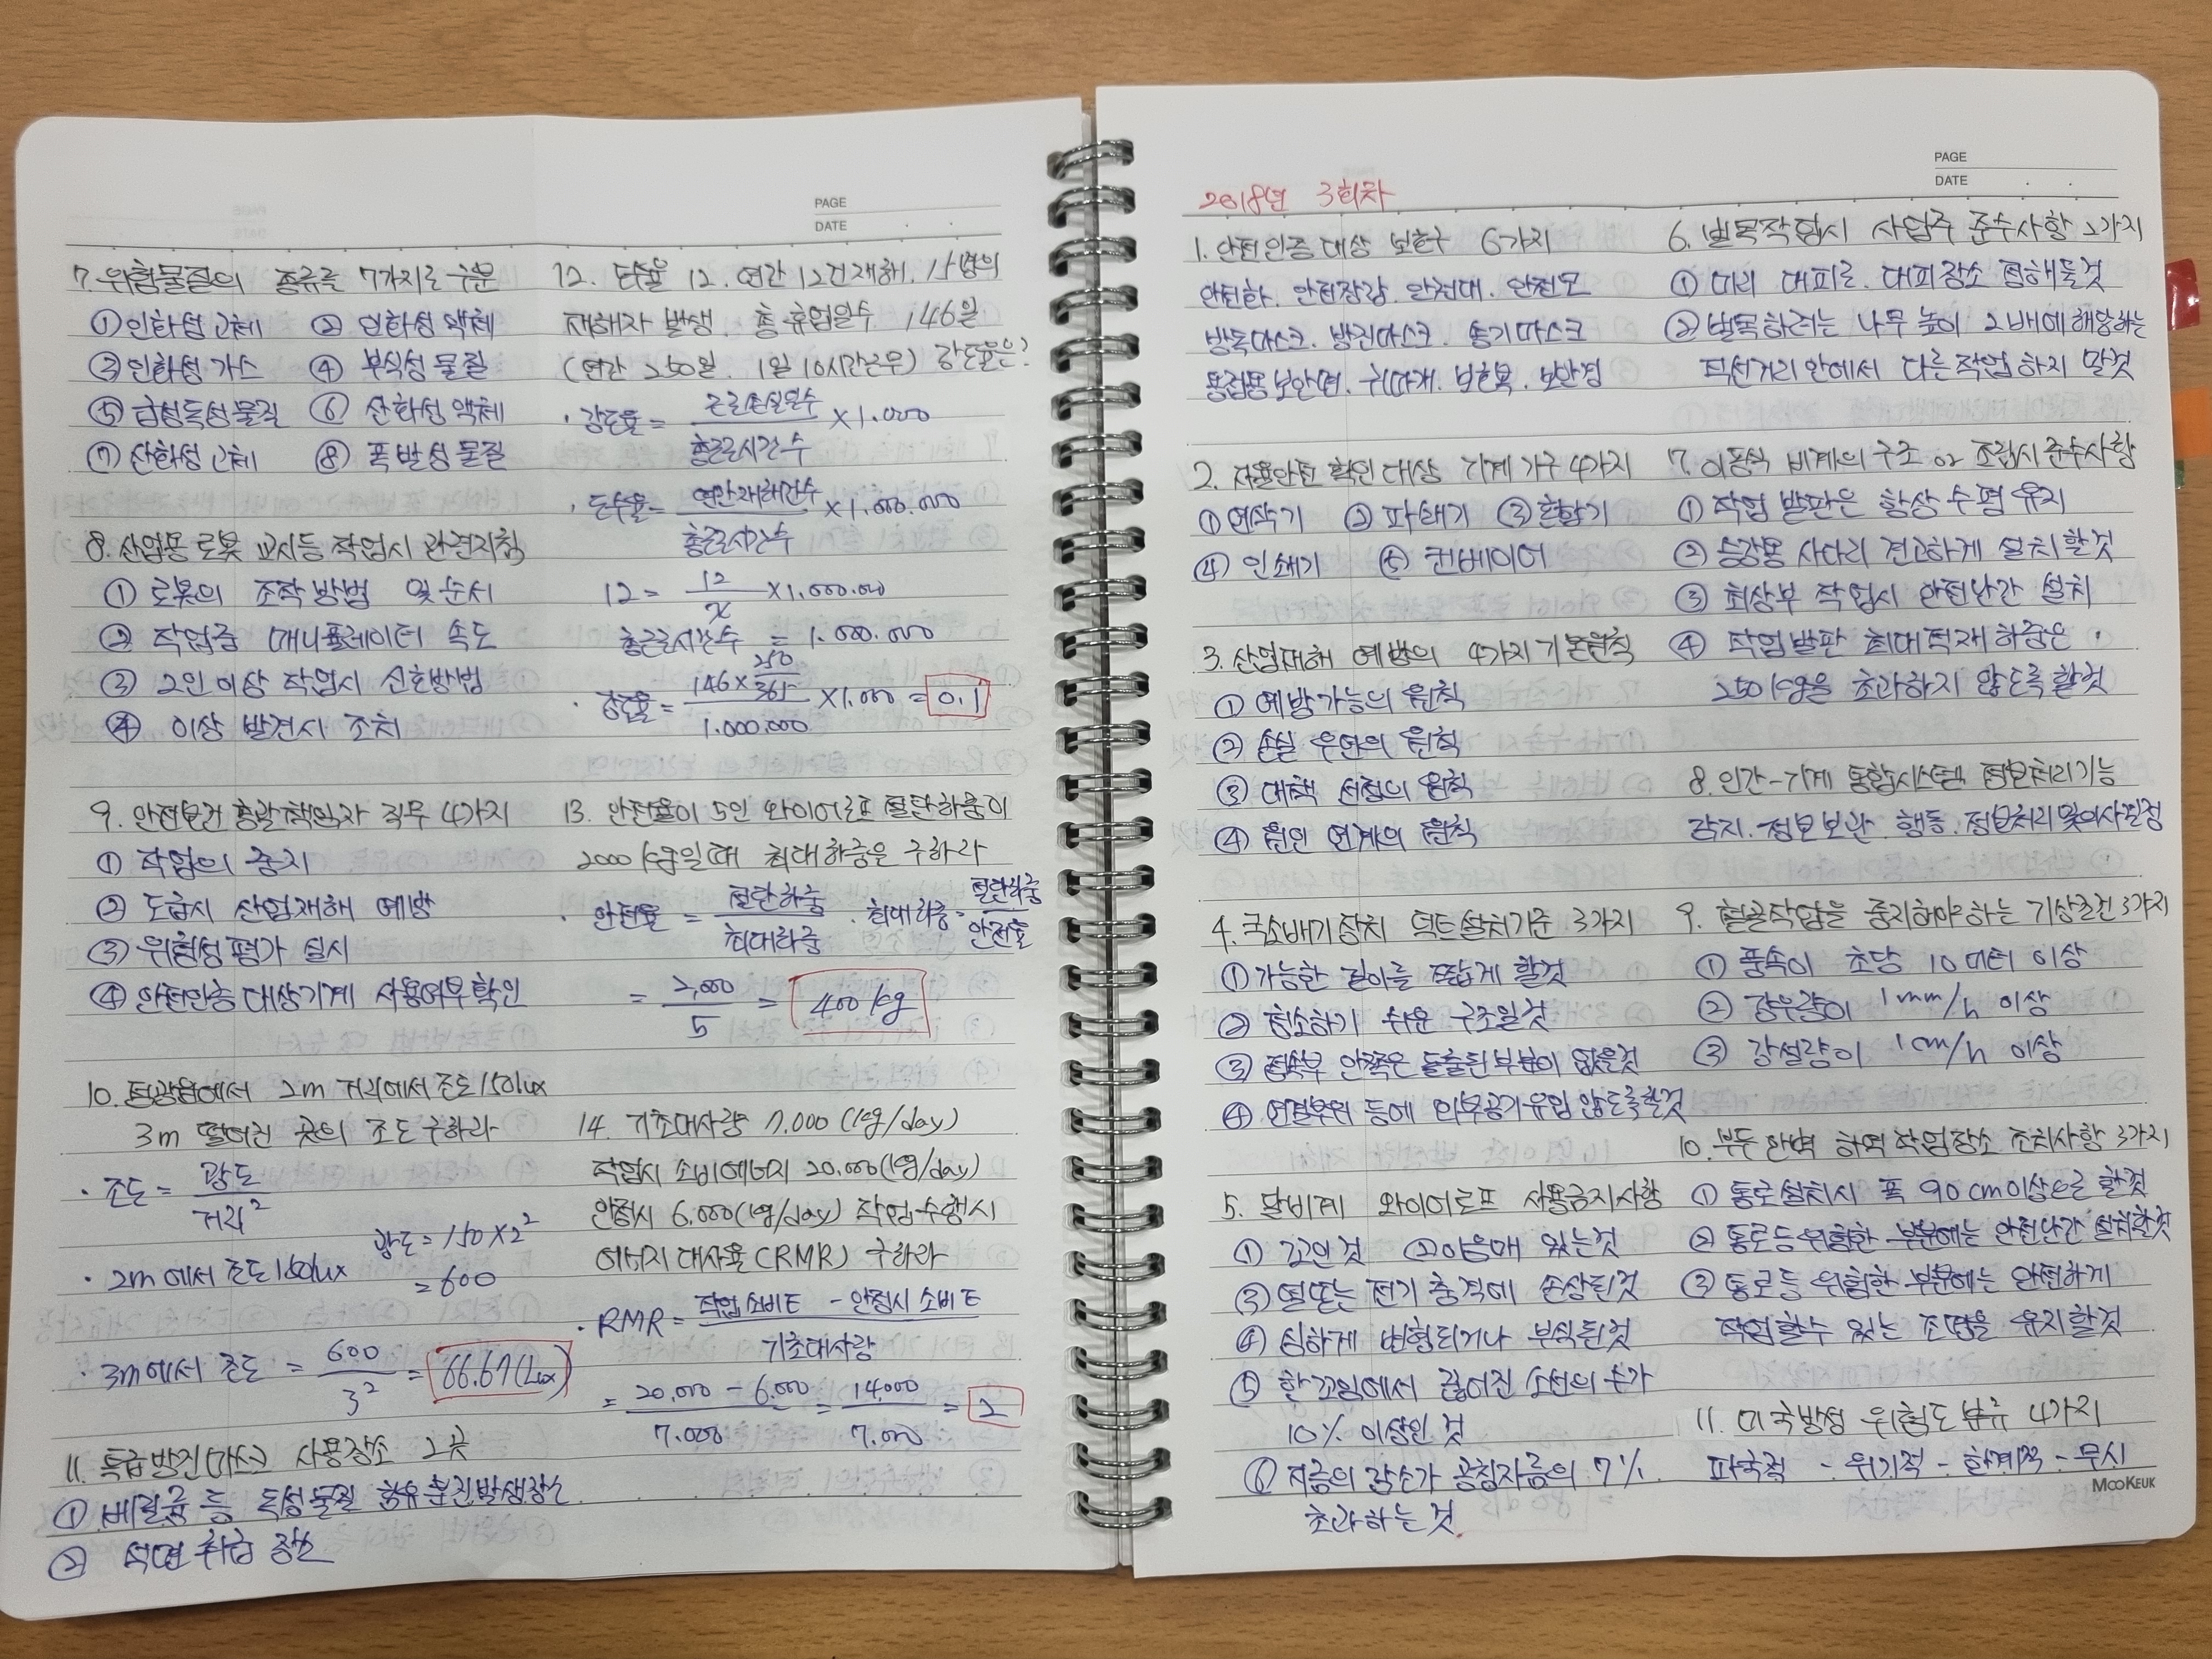 PAGE
DATE
7. 위험물질의 종류를 7가지로 구분
① 인화성 고체 ② 인화성 액체
③ 인화성 가스 ④ 부식성 물질
⑤ 급성독성물질 ⑥ 산화성 액체
⑦ 산화성 고체 ⑧ 폭발성 물질
8. 산업용 로봇 교시등 작업시 관련지침
① 로봇의 조작방법 및 순서
② 작업중 매니퓰레이터 속도
③ 2인이상 작업시 신호방법
④ 이상 발견시 조치
9. 안전보건 총괄책임자 직무 4가지
① 작업의 중지
② 도급시 산업재해 예방
③ 위험성평가 실시
④ 안전인증 대상기계 사용여부확인
10. 점광원에서 2m 거리에서 조도 150lux
3m 떨어진 곳의 조도 구하라
· 조도 = 광도 / 거리²
광도 = 150×2²
· 2m에서 조도 150lux = 600
· 3m에서 조도 = 600 / 3² = 66.67(Lux)
11. 특급방진마스크 사용장소 2곳
① 베릴륨 등 독성물질 함유 분진발생장소
② 석면 취급 장소
12. 도수율 12. 연간 12건재해. 15명의
재해자 발생. 총 휴업일수 146일
(연간 250일. 1일 10시간근무) 강도율은?
· 강도율 = 근로손실일수 / 총근로시간수 ×1.000
· 도수율 = 연간재해건수 / 총근로시간수 ×1.000.000
12 = 12 / x ×1.000.000
총근로시간수 = 1.000.000
· 강도율 = 146 × 250/365 / 1.000.000 ×1.000 = 0.1
13. 안전율이 5인 와이어로프 절단하중이
2000kg일때 최대하중은 구하라
· 안전율 = 절단하중 / 최대하중 · 최대하중 = 절단하중 / 안전율
= 2,000 / 5 = 400kg
14. 기초대사량 7.000 (kg/day)
작업시 소비에너지 20.000(kg/day)
안정시 6.000(kg/day) 작업수행시
에너지 대사율(RMR) 구하라
· RMR = 작업소비E - 안정시 소비E / 기초대사량
= 20.000 - 6.000 / 7.000 = 14.000 / 7.000 = 2
PAGE
DATE
2018년 3회차
1. 안전인증대상 보호구 6가지
안전화. 안전장갑. 안전대. 안전모
방독마스크. 방진마스크. 송기마스크
용접용보안면. 귀마개. 보호복. 보안경
2. 자율안전 확인대상 기계 기구 4가지
① 연삭기 ② 파쇄기 ③ 혼합기
④ 인쇄기 ⑤ 컨베이어
3. 산업재해 예방의 4가지 기본원칙
① 예방가능의 원칙
② 손실 우연의 원칙
③ 대책 선정의 원칙
④ 원인 연계의 원칙
4. 국소배기장치 덕트설치기준 3가지
① 가능한 길이를 짧게 할것
② 청소하기 쉬운 구조일것
③ 접속부 안쪽은 돌출된부분이 없을것
④ 연결부위 등에 외부공기유입 않도록할것
5. 달비계 와이어로프 사용금지사항
① 꼬인것 ② 이음매 있는것
③ 열또는 전기 충격에 손상된것
④ 심하게 변형되거나 부식된것
⑤ 한꼬임에서 끊어진 소선의 수가
10% 이상인 것
⑥ 지름의 감소가 공칭지름의 7%
초과하는 것.
6. 벌목작업시 사업주 준수사항 2가지
① 미리 대피로. 대피장소 정해둘것
② 벌목하려는 나무 높이 2배에해당하는
직선거리안에서 다른작업하지 말것
7. 이동식 비계의 구조 or 조립시 준수사항
① 작업 발판은 항상 수평 유지
② 승강용 사다리 견고하게 설치할것
③ 최상부 작업시 안전난간 설치
④ 작업발판 최대적재하중은
250kg을 초과하지 않도록할것
8. 인간-기계 통합시스템 정보처리기능
감지. 정보보관. 행동. 정보처리및의사결정
9. 철골작업을 중지해야하는 기상조건3가지
① 풍속이 초당 10미터 이상
② 강우량이 1mm/h 이상
③ 강설량이 1cm/h 이상
10. 부두 안벽 하역작업장소 조치사항 3가지
① 통로설치시 폭 90cm이상으로 할것
② 통로등위험한 부분에는 안전난간 설치할것
③ 통로등 위험한 부분에는 안전하게
작업할수 있는 조명을 유지할것
11. 미국방성 위험도 분류 4가지
파국적 - 위기적 - 한계적 - 무시
MOOKEUK